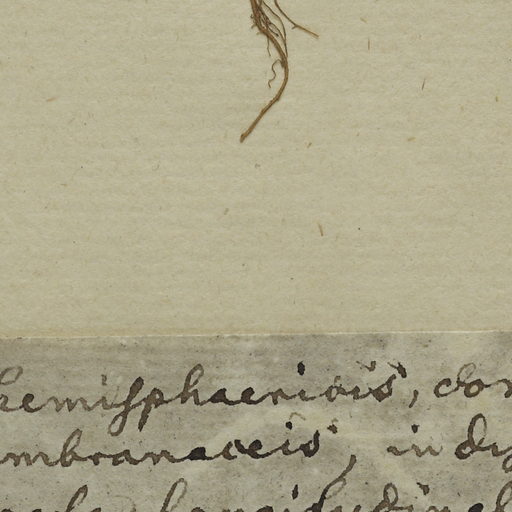 hemisphaeriois, con
mbranaceis, in dy
longitudin